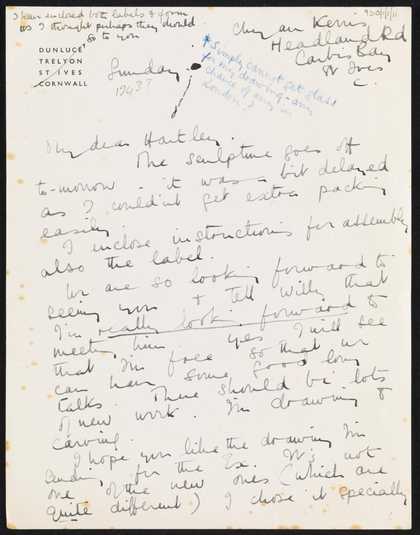 I have enclosed both labels & form
as I thought perhaps they should
go to you
9210/1/1/11
Chy an Kerris
Headland Rd
Carbis Bay
St Ives
C.
DUNLUCE
TRELYON
ST IVES
CORNWALL
Sunday
1943?
* Simply cannot get glass
for my drawing - any
chance of any in
London?
My dear Hartley.
The sculpture goes off
to-morrow - it was a bit delayed
as I couldn't get extra packing
easily.
I inclose instructions for assembly
also the label.
We are so looking forward to
seeing you & tell Willy that
I'm really looking forward to
meeting him yes I will see
that I'm free so that we
can have some good long
talks. There should be lots
of new work. I'm drawing &
carving.
I hope you like the drawing I'm
sending for the Ex. It's not
one of the new ones (which are
quite different) I chose it specially